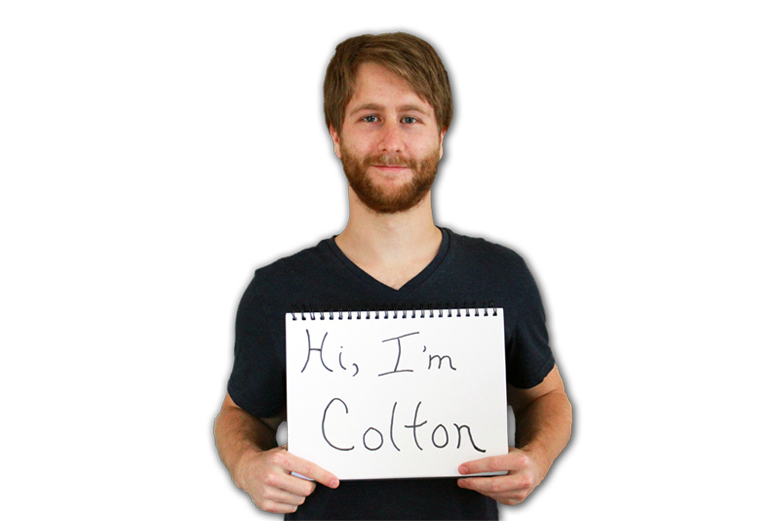 Hi, I'm
Colton